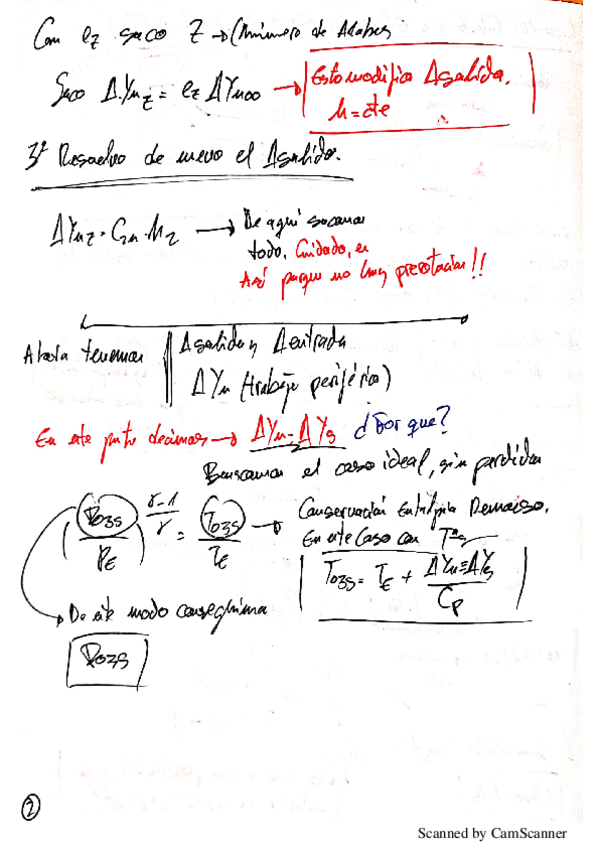 Con ez saco Z → (Número de Alabes
Saco ΔYuz = ez ΔYu∞ → Esto modifica Δsalida.
u = cte
3º Resuelvo de nuevo el Δsalida.
ΔYuz = C2u · u2 → De aquí sacamos
todo. Cuidado, es
Así porque no hay prerotación!!
Ahora tenemos Δsalida y Δentrada
ΔYu (trabajo periférico)
En este punto decimos → ΔYu = ΔYs ¿Por que?
Buscamos el caso ideal, sin perdidas
(P03s / PE)^((γ-1)/γ) = T03s / TE → Conservación Entalpia Remanso.
En este Caso con Tªs
T03s = TE + (ΔYu ≡ ΔYs) / Cp
De este modo conseguimos
P03s
2
Scanned by CamScanner